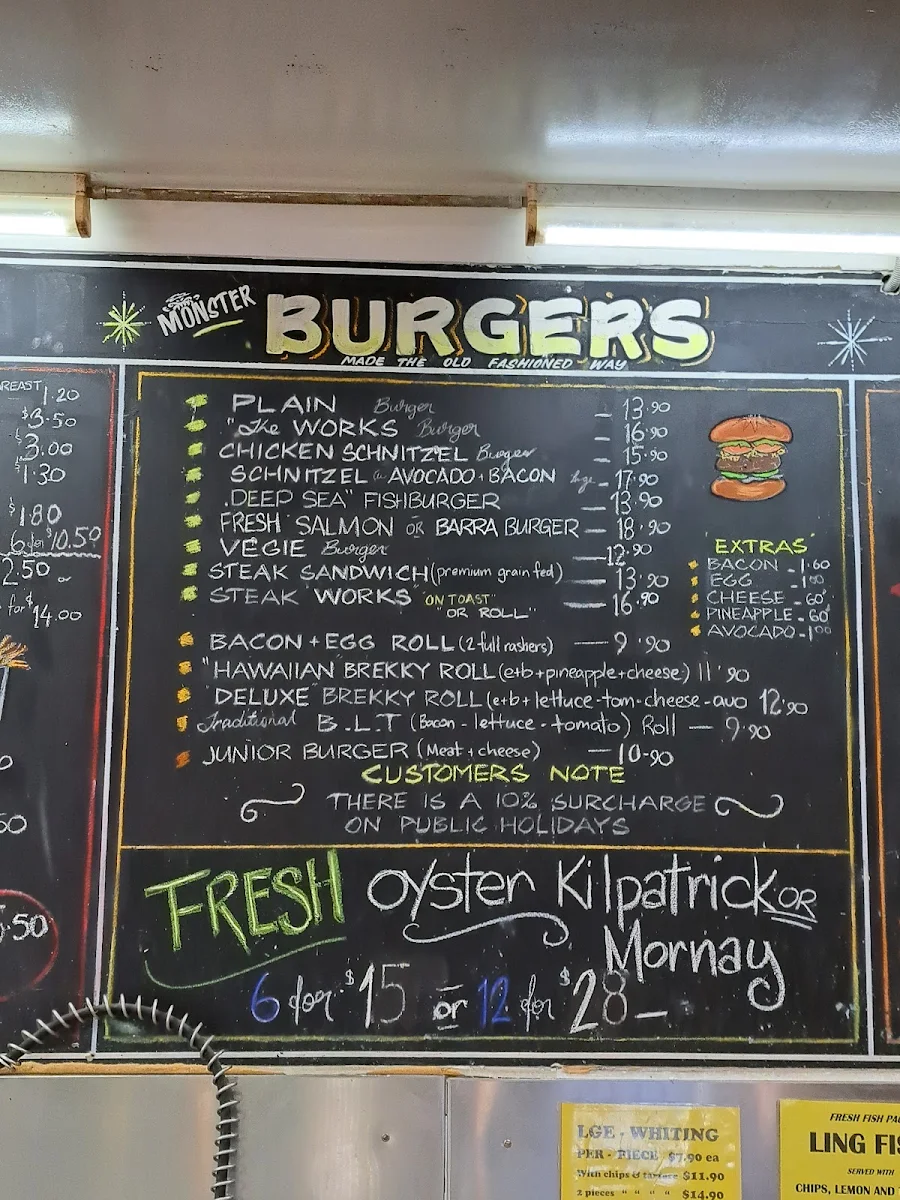 MONSTER BURGERS
MADE THE OLD FASHIONED WAY
REAST 1.20
$3.50
$3.00
$1.30
$1.80
6 for $10.50
2.50
for $14.00
50
.50
PLAIN Burger — 13.90
"The WORKS Burger — 16.90
CHICKEN SCHNITZEL Burger — 15.90
SCHNITZEL AVOCADO + BACON — 17.90
"DEEP SEA" FISHBURGER — 13.90
FRESH SALMON OR BARRA BURGER — 18.90
VEGIE Burger — 12.90
STEAK SANDWICH (premium grain fed) — 13.90
STEAK "WORKS" "ON TOAST" — 16.90
"OR ROLL"
BACON + EGG ROLL (2 full rashers) — 9.90
"HAWAIIAN" BREKKY ROLL (e+b+pineapple+cheese) 11.90
"DELUXE" BREKKY ROLL (e+b+lettuce-tom-cheese-avo 12.90
Traditional B.L.T (Bacon-lettuce-tomato) Roll — 9.90
JUNIOR BURGER (Meat + cheese) — 10.90
"EXTRAS"
BACON - 1.60
EGG - 1.00
CHEESE - 60
PINEAPPLE - 60
AVOCADO - 1.00
CUSTOMERS NOTE
THERE IS A 10% SURCHARGE
ON PUBLIC HOLIDAYS
FRESH Oyster Kilpatrick OR
Mornay
6 for $15 or 12 for $28 —
LGE - WHITING
PER - PIECE $7.90 ea
With chips & tartare $11.90
2 pieces " " " " $14.90
FRESH FISH PA
LING FIS
SERVED WITH
CHIPS, LEMON AND